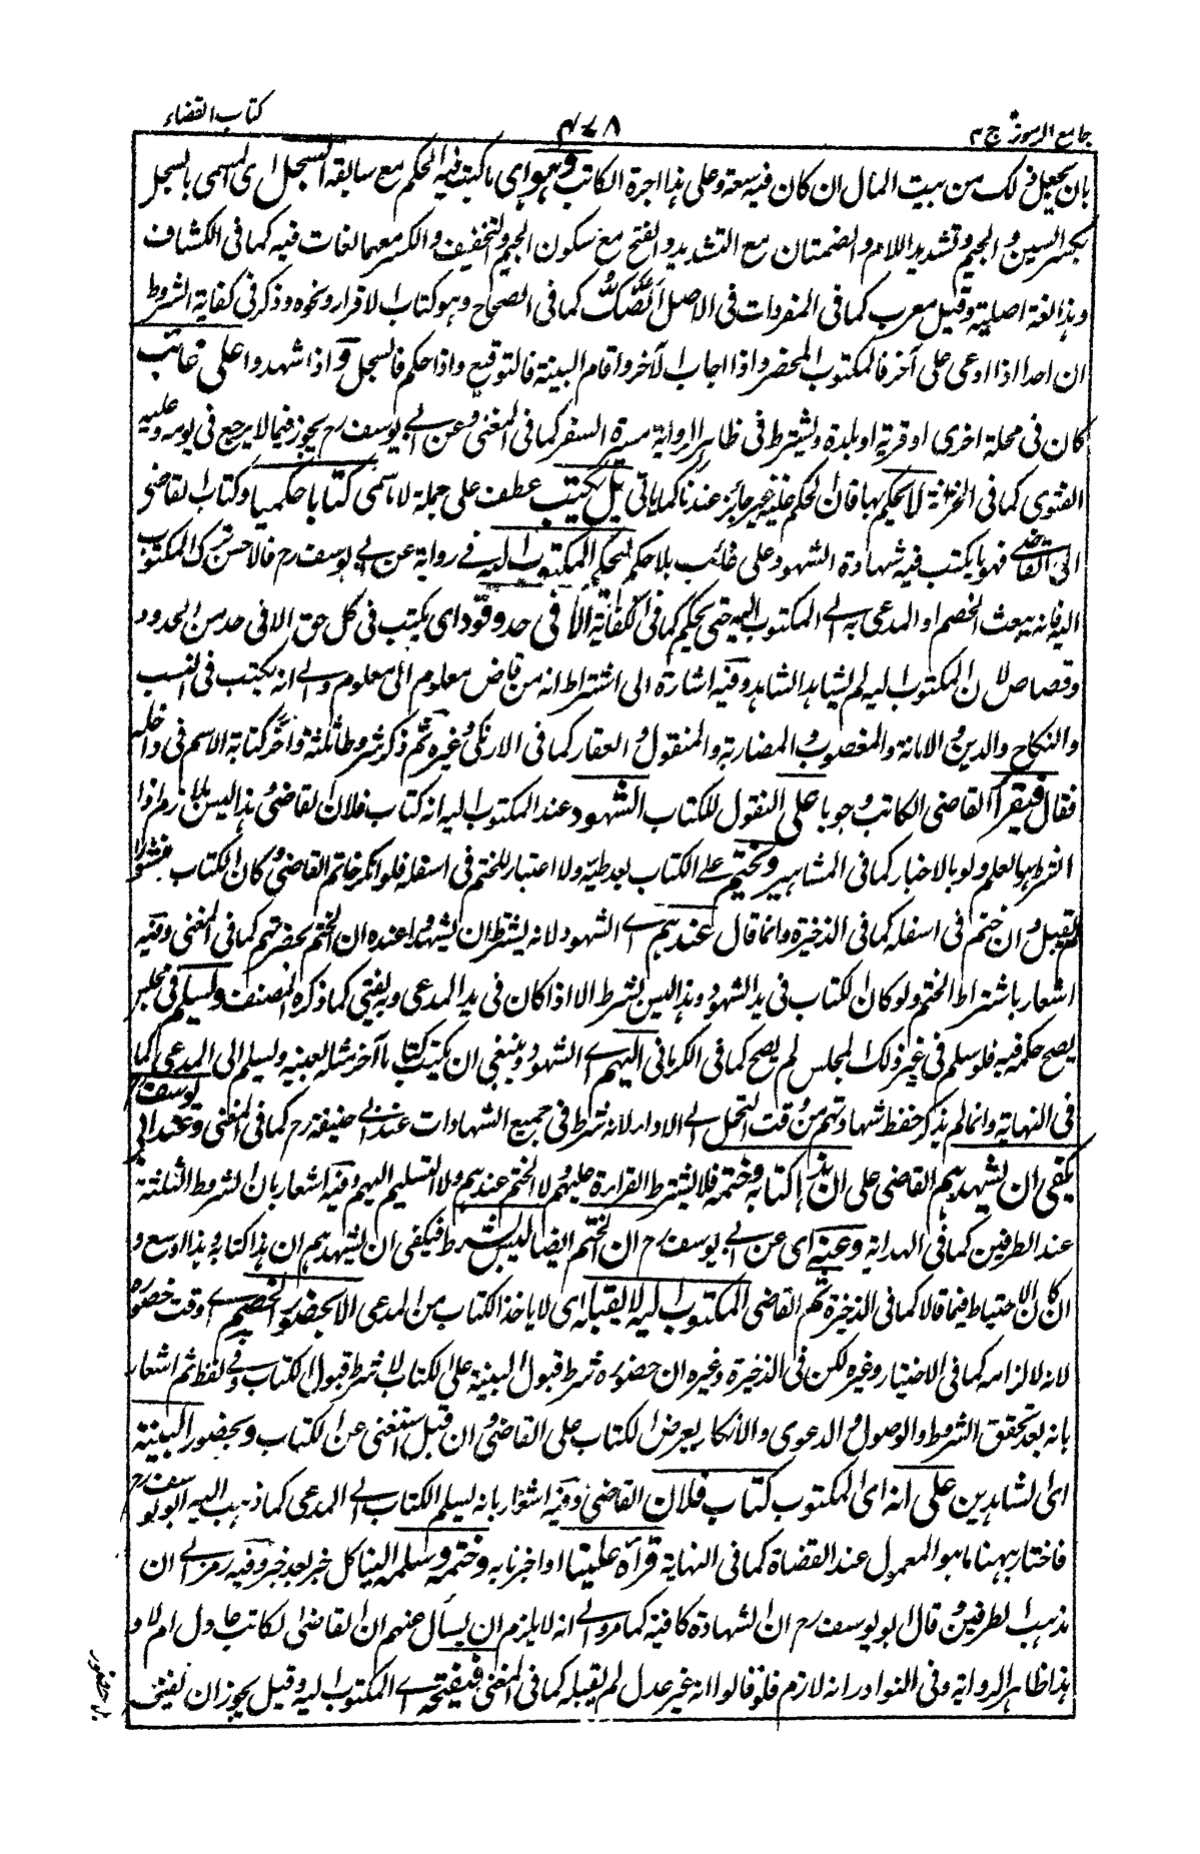 كتاب القضاء
٤٧٨
جامع الرموز ج ٢
بان يجعل ذلك من بيت المال ان كان فيه سعة وعلى هذا اجرة الكاتب وهو اى ما كتب فيه الحكم مع سابقه السجل اى المسمى بالسجل
بكسر السين والجيم وتشديد اللام والضمتان مع التشديد والفتح مع سكون الجيم والتخفيف والكسر معهما لغات فيه كما فى الكشاف
وهذا لغة اصلية وقيل معرب كما فى المفردات فى الاصل الصك كما فى الصحاح وهو كتاب الاقرار ونحوه وذكر فى كفاية الشروط
ان احدا اذا ادعى على آخر فالمكتوب المحضر واذا اجاب الآخر واقام البينة فالتوقيع واذا حكم فالسجل و اذا شهدوا على غائب
كان فى محلة اخرى او قرية او بلدة ويشترط فى ظاهر الرواية مسيرة السفر كما فى المغنى وعن ابى يوسف رح يجوز فيما لا يرجع فى يومه وعليه
الفتوى كما فى الخزانة لا يحكم بها فان الحكم عليه غير جائز عندنا كما يأتى بل يكتب عطف على جملة لا ما سمى كتابا حكميا وكتاب القاضى
الى القاضى فهو ما يكتب فيه شهادة الشهود على غائب بلا حكم ليحكم المكتوب اليه فى رواية عن ابى يوسف رح فالاحسن ترك المكتوب
اليه فانه يبعث الخصم او المدعى به الى المكتوب اليه حتى يحكم كما فى الكفاية الا فى حد وقود اى يكتب فى كل حق الا فى حد من الحدود
وقصاص لان المكتوب اليه لم يشاهد الشاهد وفيه اشارة الى اشتراط انه من قاض معلوم الى معلوم والى انه يكتب فى النسب
والنكاح والدين والامانة والمغصوب والمضاربة والمنقول والعقار كما فى الارتكى وغيره ثم ذكر شروطا ثلثة واخر كتابة الاسم فى داخله
فقال فيقرأ القاضى الكاتب وجوبا على النقول للكتاب الشهود عند المكتوب اليه انه كتاب فلان القاضى وهذا ليس بلازم اذا
الشرط هو العلم ولو بالاخبار كما فى المشاهير ويختم على الكتاب بعد طيه ولا اعتبار للختم فى اسفله فلو انكر خاتم القاضى وكان الكتاب منشورا
لم يقبل وان ختم فى اسفله كما فى الذخيرة وانما قال عندهم اى الشهود لانه يشترط ان يشهدوا عنده ان الختم بحضرتهم كما فى المغنى وفيه
اشعار باشتراط الختم ولو كان الكتاب فى يد الشهود وهذا ليس بشرط الا اذا كان فى يد المدعى وبه يفتى كما ذكره المصنف ويسلم فى مجلس
يصح حكمه فيه فلو سلم فى غير ذلك المجلس لم يصح كما فى الكرمانى اليهم اى الشهود وينبغى ان يكتب كتابا آخر مثله بعينه ويسلم الى المدعى كما
فى النهاية وانما لم يذكر حفظ شهادتهم من وقت التحمل الى الاداء لانه شرط فى جميع الشهادات عند ابى حنيفة رح كما فى المغنى وعند ابى يوسف رح
يكفى ان يشهدهم القاضى على ان هذا كتابه وختمه فلا يشترط القراءة عليهم ولا الختم عندهم ولا التسليم اليهم وفيه اشعار بان الشروط الثلثة
عند الطرفين كما فى الهداية وعنه اى عن ابى يوسف رح ان الختم ايضا ليس بشرط فيكفى ان يشهدهم ان هذا كتابه وهذا اوسع و
ان كان الاحتياط فيما قالا كما فى الذخيرة ثم القاضى المكتوب اليه لا يقبله اى لا ياخذ الكتاب من المدعى الا بحضور الخصم اى وقت حضوره
لانه لالزامه كما فى الاختيار وغيره لكن فى الذخيرة وغيره ان حضوره شرط قبول البينة على الكتاب لا شرط قبول الكتاب وفى لفظ ثم اشعار
بانه بعد تحقق الشروط والوصول والدعوى والانكار يعرض الكتاب على القاضى وان قبل استغنى عن الكتاب وبحضور البينة
اى الشاهدين على انه اى المكتوب كتاب فلان القاضى وفيه اشعار بانه يسلم الكتاب الى المدعى كما ذهب اليه ابو يوسف رح
فاختار ههنا ما هو المعمول عند القضاة كما فى النهاية قرأه علينا او اخبرنا به وختمه وسلمه الينا كل خبر بعد خبر وفيه رمز الى ان
مذهب الطرفين وقال ابو يوسف رح ان الشهادة كافية كما مر والى انه لا يلزم ان يسأل عنهم ان القاضى الكاتب عادل ام لا و
هذا ظاهر الرواية وفى النوادر انه لازم فلو قالوا انه غير عدل لم يقبله كما فى المغنى فيفتحه اى المكتوب اليه وقيل يجوز ان يفتى
بلا حضور